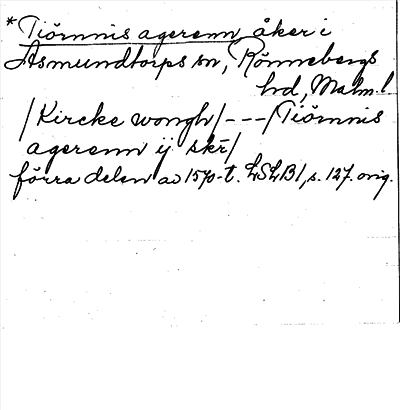 *Tiörnnis agerenn åker i
Asmundtorps sn, Rönnebergs
hd, Malm.l.
/Kircke wongh/---/Tiörnnis
agerenn ij skr/
förra delen av 1570-t. LSLB1, s. 127. orig.